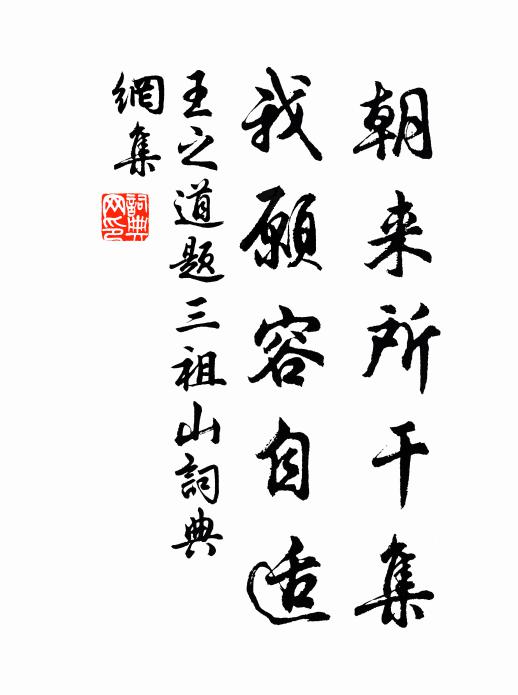 朝来所干集
我願容自适
王之道题三祖山詞典
網集
詞典网印